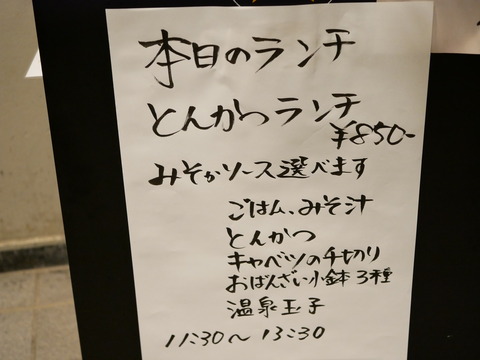 本日のランチ
とんかつランチ
¥850-
みそかソース選べます
ごはん、みそ汁
とんかつ
キャベツの千切り
おばんざい小鉢3種
温泉玉子
11:30〜13:30